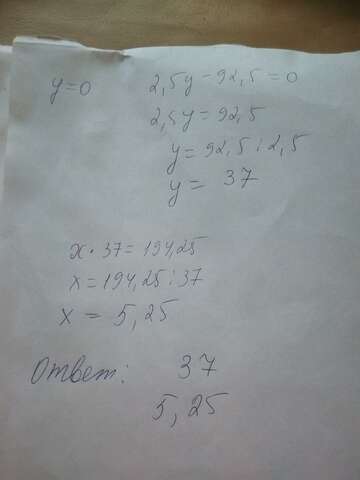 y=0
2,5y-92,5=0
2,5y=92,5
y=92,5:2,5
y= 37
x·37=194,25
x=194,25:37
x = 5,25
Ответ: 37
5,25